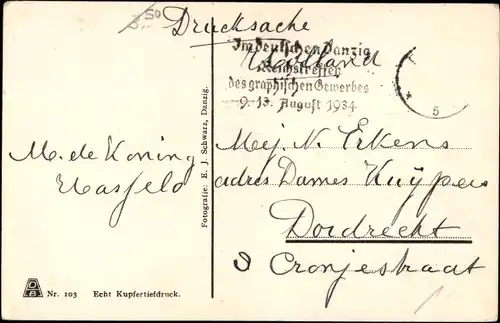 Drucksache
Im deutschen Danzig
Holland
Reichstreffen
des graphischen Gewerbes
9.-13. August 1934
5
M. de Koning
Hasfeld
Fotografie: E. J. Schwarz, Danzig.
Mej. N. Erkens
adres Dames Kuÿpers
Dordrecht
Cronjestraat
Nr. 103 Echt Kupfertiefdruck.